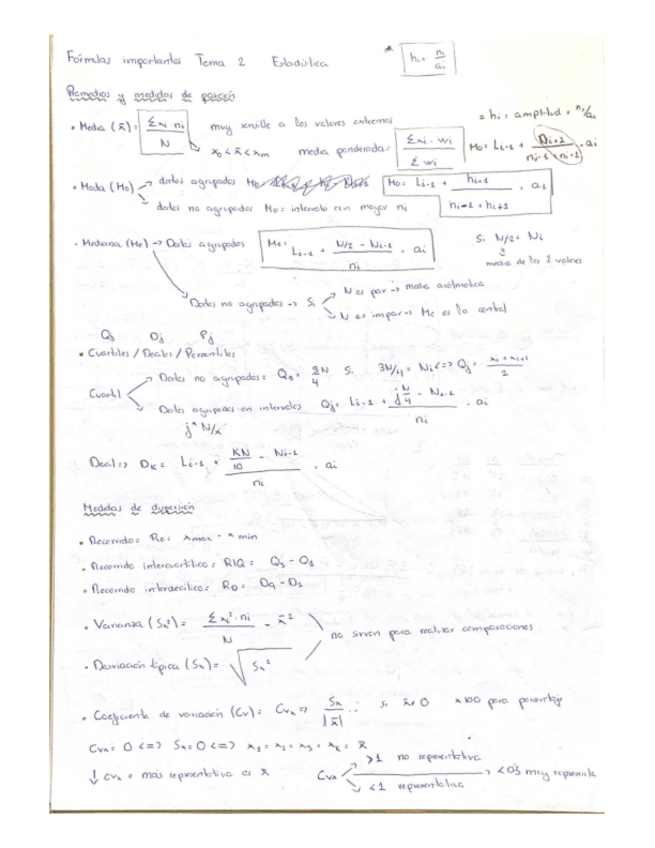 Fórmulas importantes Tema 2 Estadística
* hi = ni / ai
Promedios y medidas de posición
• Media (x̄) = Σxi · ni / N muy sensible a los valores extremos
x0 < x̄ < xm media ponderada: Σxi · wi / Σwi
= hi = amplitud = ni/ai
• Moda (Mo) → datos agrupados Mo = Li-1 + hi+1 / hi-1 + hi+1 · ai
Mo = Li-1 + ni+1 / ni-1 + ni+1 · ai
→ datos no agrupados Mo = intervalo con mayor ni
• Mediana (Me) → Datos agrupados Me = Li-1 + N/2 - Ni-1 / ni · ai
Si N/2 = Ni
media de los 2 valores
Datos no agrupados → Si N es par → media aritmética
N es impar → Me es la central
Qj Dj Pj
• Cuartiles / Deciles / Percentiles
Cuartil → Datos no agrupados = Q3 = 3N/4 Si 3N/4 = Ni <=> Qj = xi + xi+1 / 2
→ Datos agrupados en intervalos Qj = Li-1 + j N/4 - Ni-1 / ni · ai
j* N/k
Decil => DK = Li-1 + KN/10 - Ni-1 / ni · ai
Medidas de dispersión
• Recorrido = Re = xmax - xmin
• Recorrido intercuartílico = RIQ = Q3 - Q1
• Recorrido interdecílico = RD = D9 - D1
• Varianza (Sx²) = Σxi² · ni / N - x̄²
no sirven para realizar comparaciones
• Desviación típica (Sx) = √Sx²
• Coeficiente de variación (Cv) = Cvx => Sx / |x̄| si x̄ ≠ 0 x100 para porcentaje
Cvx = 0 <=> Sx = 0 <=> x1 = x2 = x3 = xk = x̄
↓ Cvx = más representativa es x̄
Cvx → >1 no representativa
→ <1 representativa → <0'5 muy representa